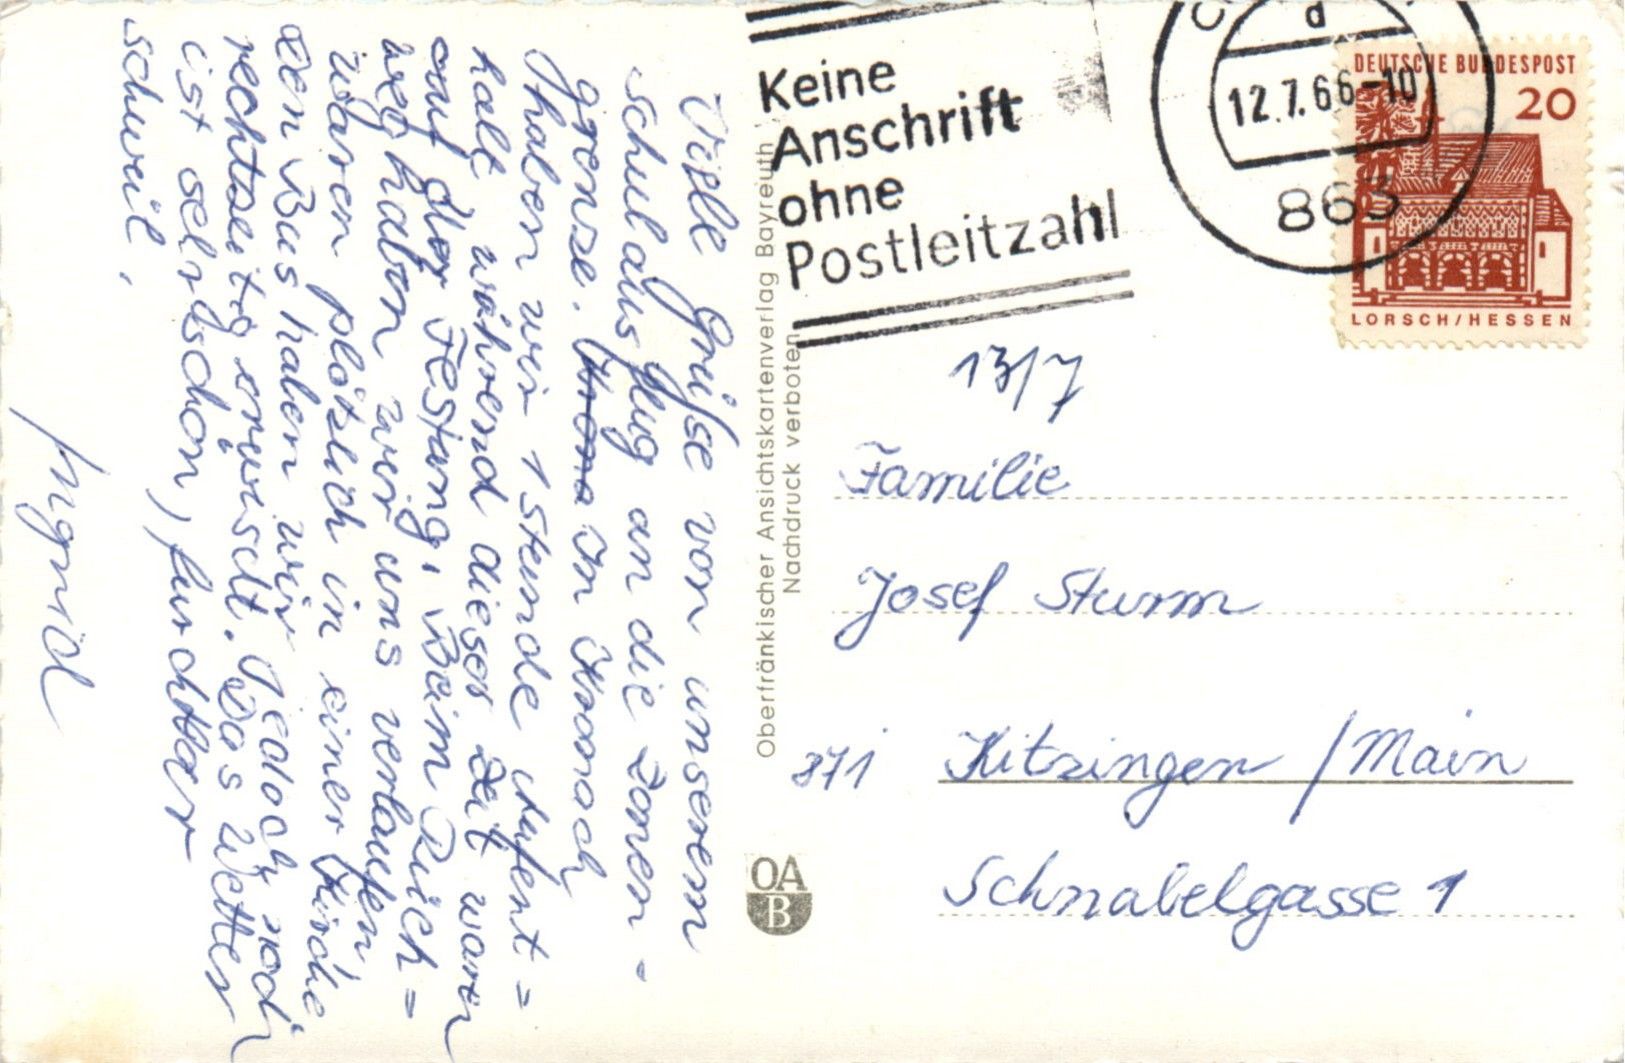 Viele Grüße von unserem
Schulausflug an die Zonen-
grenze. In Kronach
haben wir 1 Stunde Aufent=
halt während dieser Zeit waren
auf der Festung, Beim Rück=
weg haben wir uns verlaufen
waren plötzlich in einer Kirche
den Bus haben wir jedoch noch
rechtzeitig erwischt. Das Wetter
ist sehr schön, furchtbar
schwül.
Ingrid
Oberfränkischer Ansichtskartenverlag Bayreuth
Nachdruck verboten
OA
B
Keine
Anschrift
ohne
Postleitzahl
d
12.7.66-10
863
DEUTSCHE BUNDESPOST
20
LORSCH/HESSEN
13/7
Familie
Josef Sturm
871 Kitzingen /Main
Schnabelgasse 1